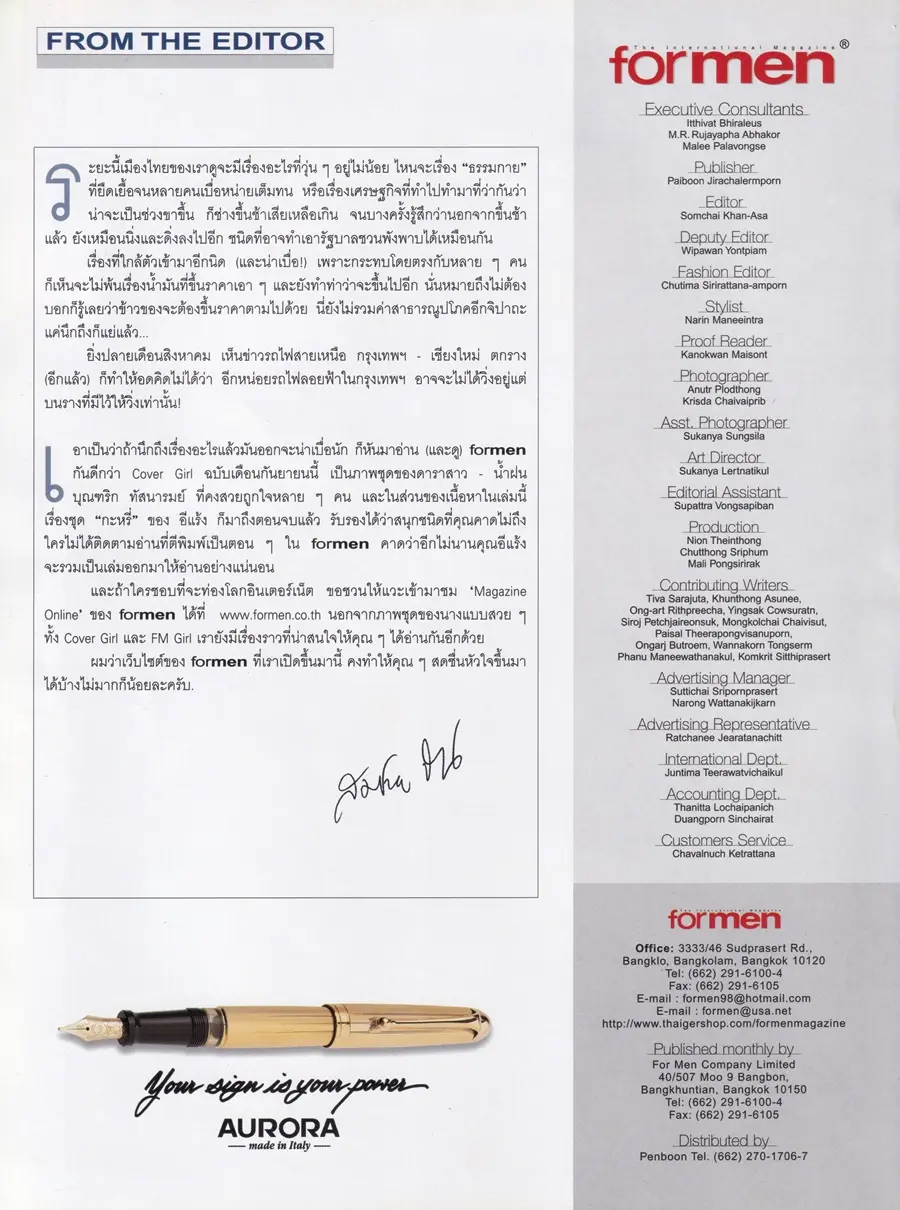 FROM THE EDITOR
ระยะนี้เมืองไทยของเราดูจะมีเรื่องอะไรที่วุ่น ๆ อยู่ไม่น้อย ไหนจะเรื่อง “ธรรมกาย”
ที่ยืดเยื้อจนหลายคนเบื่อหน่ายเต็มทน หรือเรื่องเศรษฐกิจที่ทำไปทำมาที่ว่ากันว่า
น่าจะเป็นช่วงขาขึ้น ก็ช่างขึ้นช้าเสียเหลือเกิน จนบางครั้งรู้สึกว่านอกจากขึ้นช้า
แล้ว ยังเหมือนนิ่งและดิ่งลงไปอีก ชนิดที่อาจทำเอารัฐบาลชวนพังพาบได้เหมือนกัน
เรื่องที่ใกล้ตัวเข้ามาอีกนิด (และน่าเบื่อ!) เพราะกระทบโดยตรงกับหลาย ๆ คน
ก็เห็นจะไม่พ้นเรื่องน้ำมันที่ขึ้นราคาเอา ๆ และยังทำท่าว่าจะขึ้นไปอีก นั่นหมายถึงไม่ต้อง
บอกก็รู้เลยว่าข้าวของจะต้องขึ้นราคาตามไปด้วย นี่ยังไม่รวมค่าสาธารณูปโภคอีกจิปาถะ
แค่นึกถึงก็แย่แล้ว...
ยิ่งปลายเดือนสิงหาคม เห็นข่าวรถไฟสายเหนือ กรุงเทพฯ - เชียงใหม่ ตกราง
(อีกแล้ว) ก็ทำให้อดคิดไม่ได้ว่า อีกหน่อยรถไฟลอยฟ้าในกรุงเทพฯ อาจจะไม่ได้วิ่งอยู่แต่
บนรางที่มีไว้ให้วิ่งเท่านั้น!
เอาเป็นว่าถ้านึกถึงเรื่องอะไรแล้วมันออกจะน่าเบื่อนัก ก็หันมาอ่าน (และดู) formen
กันดีกว่า Cover Girl ฉบับเดือนกันยายนนี้ เป็นภาพชุดของดาราสาว - น้ำฝน
บุณฑริก ทัสนารมย์ ที่คงสวยถูกใจหลาย ๆ คน และในส่วนของเนื้อหาในเล่มนี้
เรื่องชุด “กะหรี่” ของ อีแร้ง ก็มาถึงตอนจบแล้ว รับรองได้ว่าสนุกชนิดที่คุณคาดไม่ถึง
ใครไม่ได้ติดตามอ่านที่ตีพิมพ์เป็นตอน ๆ ใน formen คาดว่าอีกไม่นานคุณอีแร้ง
จะรวมเป็นเล่มออกมาให้อ่านอย่างแน่นอน
และถ้าใครชอบที่จะท่องโลกอินเตอร์เน็ต ขอชวนให้แวะเข้ามาชม ‘Magazine
Online’ ของ formen ได้ที่ www.formen.co.th นอกจากภาพชุดของนางแบบสวย ๆ
ทั้ง Cover Girl และ FM Girl เรายังมีเรื่องราวที่น่าสนใจให้คุณ ๆ ได้อ่านกันอีกด้วย
ผมว่าเว็บไซต์ของ formen ที่เราเปิดขึ้นมานี้ คงทำให้คุณ ๆ สดชื่นหัวใจขึ้นมา
ได้บ้างไม่มากก็น้อยละครับ.
Your sign is your power
AURORA
made in Italy
The International Magazine
formen®
Executive Consultants
Itthivat Bhiraleus
M.R. Rujayapha Abhakor
Malee Palavongse
Publisher
Paiboon Jirachalermporn
Editor
Somchai Khan-Asa
Deputy Editor
Wipawan Yontpiam
Fashion Editor
Chutima Sirirattana-amporn
Stylist
Narin Maneeintra
Proof Reader
Kanokwan Maisont
Photographer
Anutr Plodthong
Krisda Chaivaiprib
Asst. Photographer
Sukanya Sungsila
Art Director
Sukanya Lertnatikul
Editorial Assistant
Supattra Vongsapiban
Production
Nion Theinthong
Chutthong Sriphum
Mali Pongsirirak
Contributing Writers
Tiva Sarajuta, Khunthong Asunee,
Ong-art Rithpreecha, Yingsak Cowsuratn,
Siroj Petchjaireonsuk, Mongkolchai Chaivisut,
Paisal Theerapongvisanuporn,
Ongarj Butroem, Wannakorn Tongserm
Phanu Maneewathanakul, Komkrit Sitthiprasert
Advertising Manager
Suttichai Sripornprasert
Narong Wattanakijkarn
Advertising Representative
Ratchanee Jearatanachitt
International Dept.
Juntima Teerawatvichaikul
Accounting Dept.
Thanitta Lochaipanich
Duangporn Sinchairat
Customers Service
Chavalnuch Ketrattana
The International Magazine
formen
Office: 3333/46 Sudprasert Rd.,
Bangklo, Bangkolam, Bangkok 10120
Tel: (662) 291-6100-4
Fax: (662) 291-6105
E-mail : formen98@hotmail.com
E-mail : formen@usa.net
http://www.thaigershop.com/formenmagazine
Published monthly by
For Men Company Limited
40/507 Moo 9 Bangbon,
Bangkhuntian, Bangkok 10150
Tel: (662) 291-6100-4
Fax: (662) 291-6105
Distributed by
Penboon Tel. (662) 270-1706-7